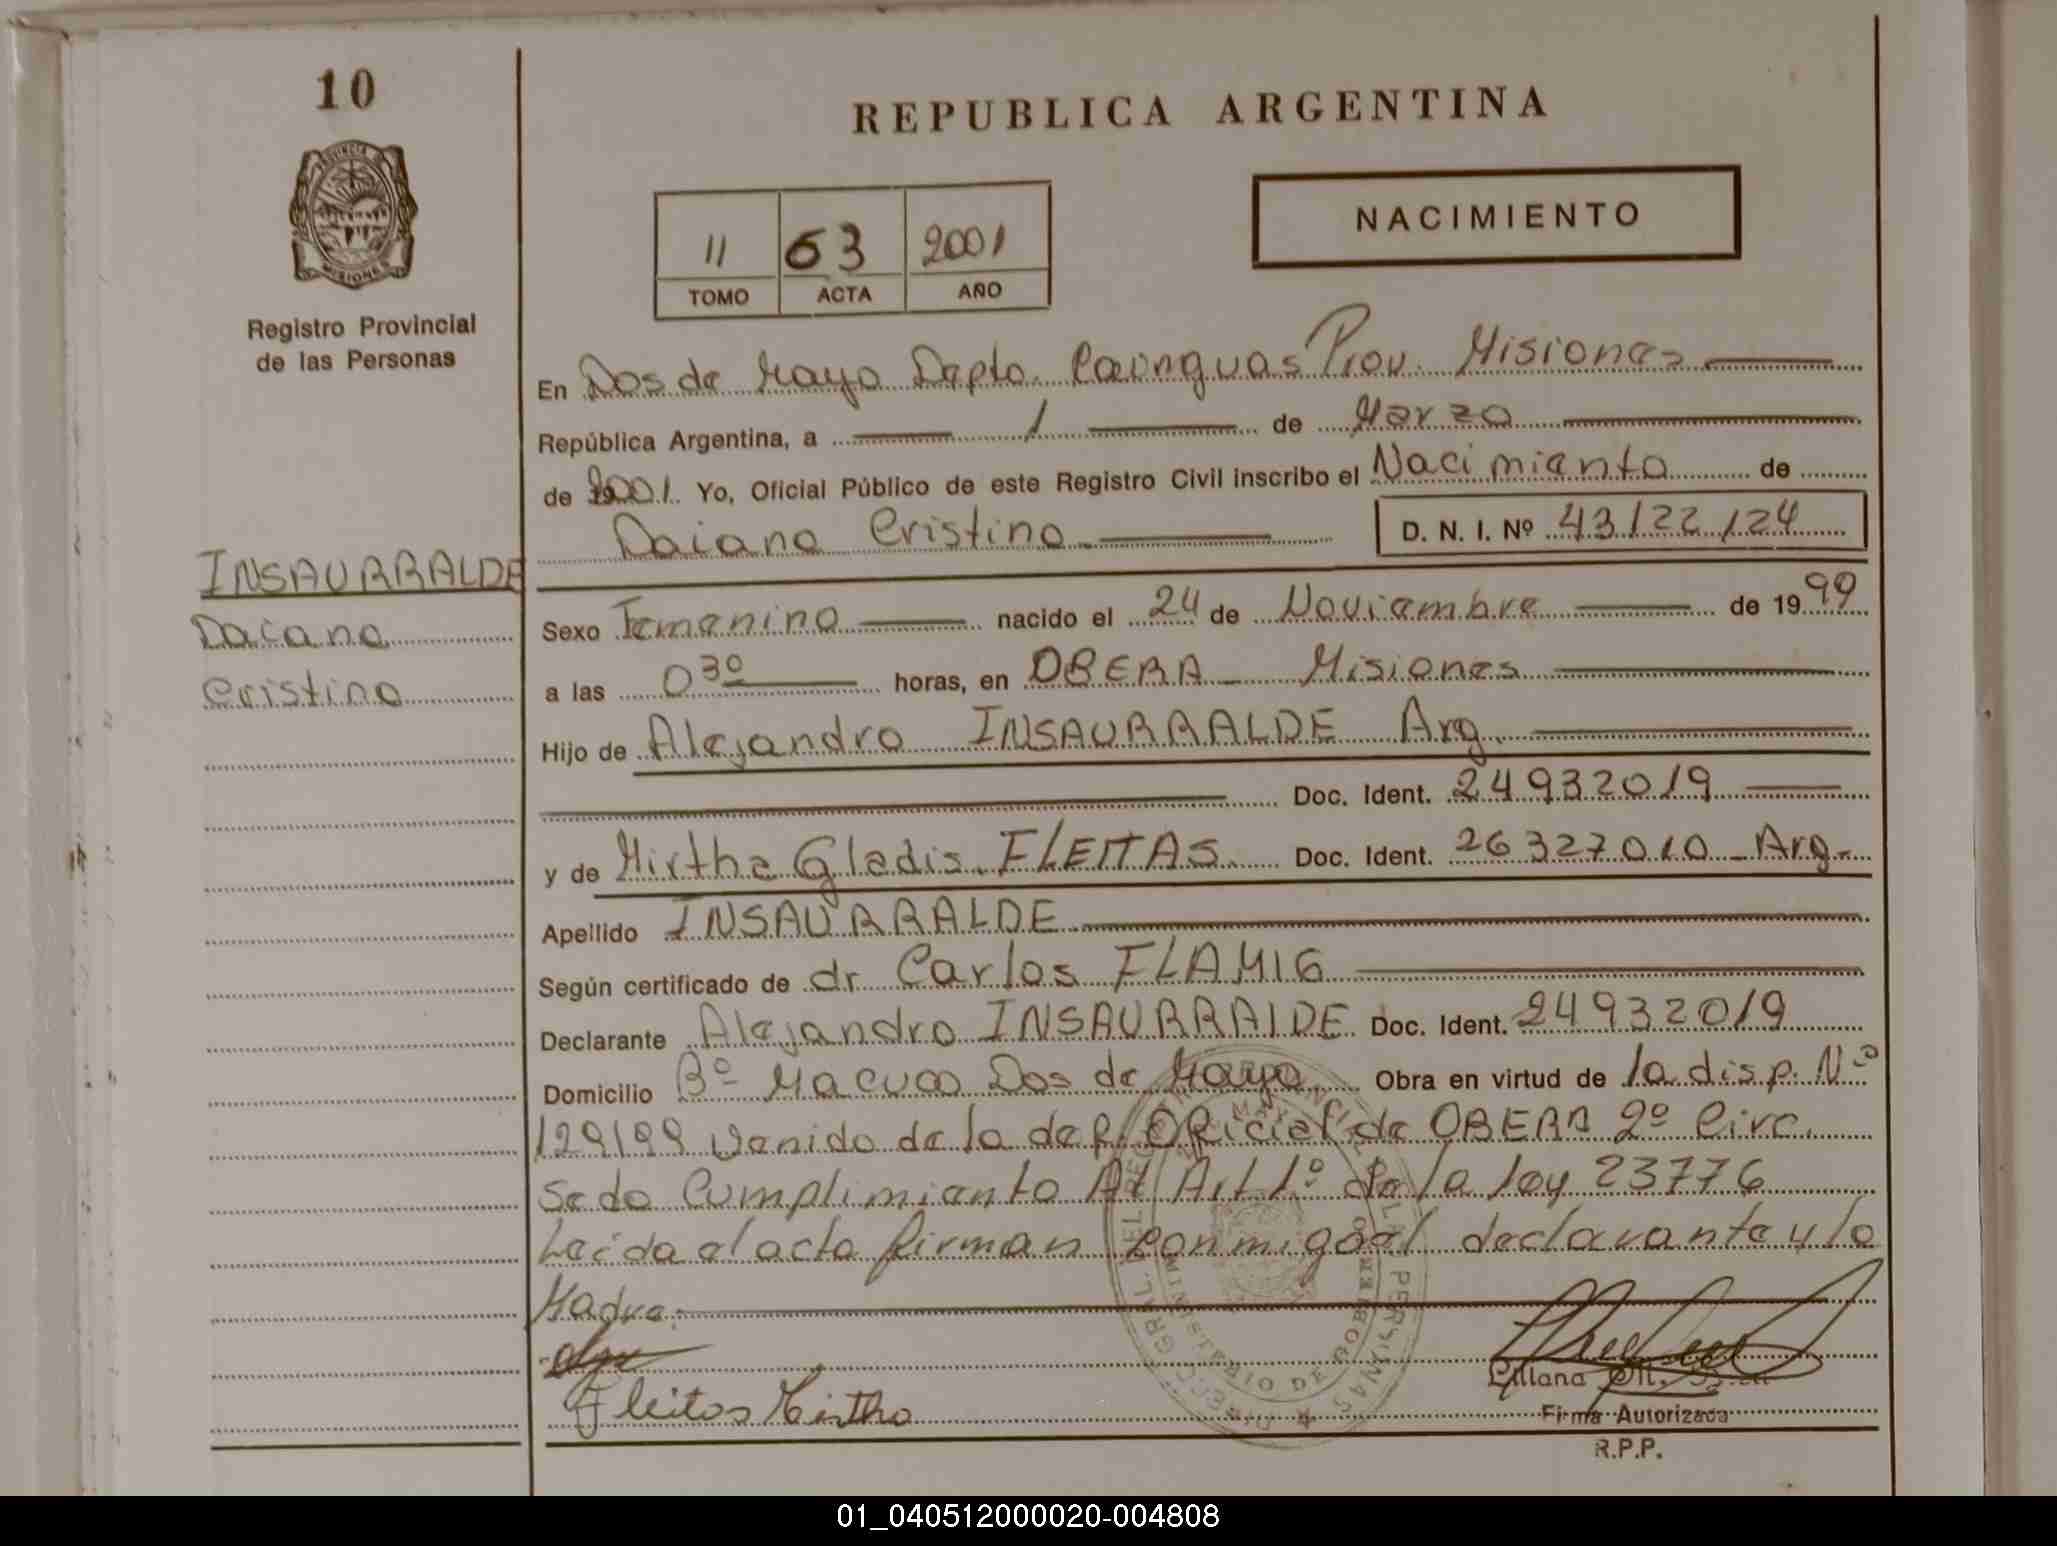 10
PROVINCIA DE
MISIONES
Registro Provincial
de las Personas
INSAURRALDE
Daiana
Cristina
REPUBLICA ARGENTINA
11 63 2001
TOMO ACTA AÑO
NACIMIENTO
En Dos de Mayo Depto. Cainguas Prov. Misiones
República Argentina, a 1 de Marzo
de 2001. Yo, Oficial Público de este Registro Civil inscribo el Nacimiento de
Daiana Cristina D. N. I. Nº 43122124
Sexo Femenino nacido el 24 de Noviembre de 1999
a las 0 30 horas, en OBERA - Misiones
Hijo de Alejandro INSAURRALDE Arg.
Doc. Ident. 24932019
y de Mirtha Gladis FLEITAS Doc. Ident. 26327010 - Arg.
Apellido INSAURRALDE
Según certificado de dr Carlos FLAMIG
Declarante Alejandro INSAURRALDE Doc. Ident. 24932019
Domicilio Bº Macuco Dos de Mayo Obra en virtud de la disp. Nº
129199 venido de la del. Oficial de OBERA 2º Circ.
Se da Cumplimiento Al Art 1º de la ley 23776
Leida el acta firman conmigo el declarante y la
Madre.
Fleitas Mirtha
Liliana M.
Firma Autorizada
R.P.P.
MINISTERIO DE GOBIERNO
01_040512000020-004808